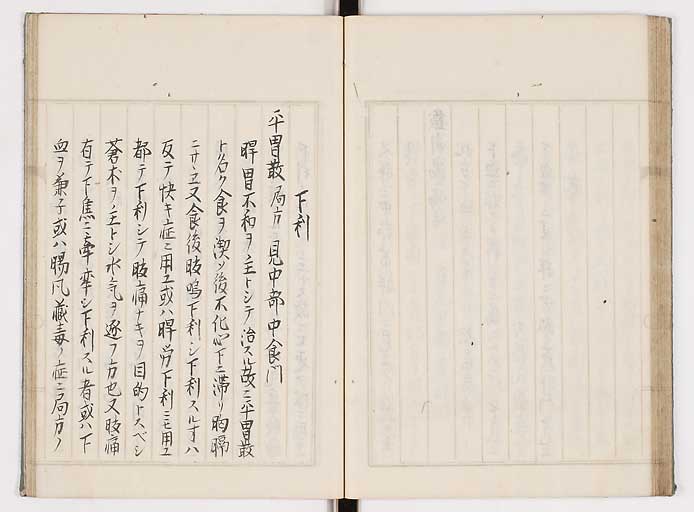 下利
平胃散 局方 見中部中食門
脾胃不和ヲ主トシテ治スル故ニ平胃散
ト名ク食ヲ喫メ後不化心下ニ滞リ胸膈
ニサヽエ又食後腹鳴下利シ下利スルトキハ
反テ快キ症ニ用ユ或ハ脾労下利ニモ用ユ
都テ下利シテ腹痛ナキヲ目的トスベシ
蒼朮ヲ主トシ水気ヲ逐フ方也又腹痛
有テ下焦ニ牽牢シ下利スル者或ハ下
血ヲ兼子或ハ腸風臓毒ノ症ニ局方ノ